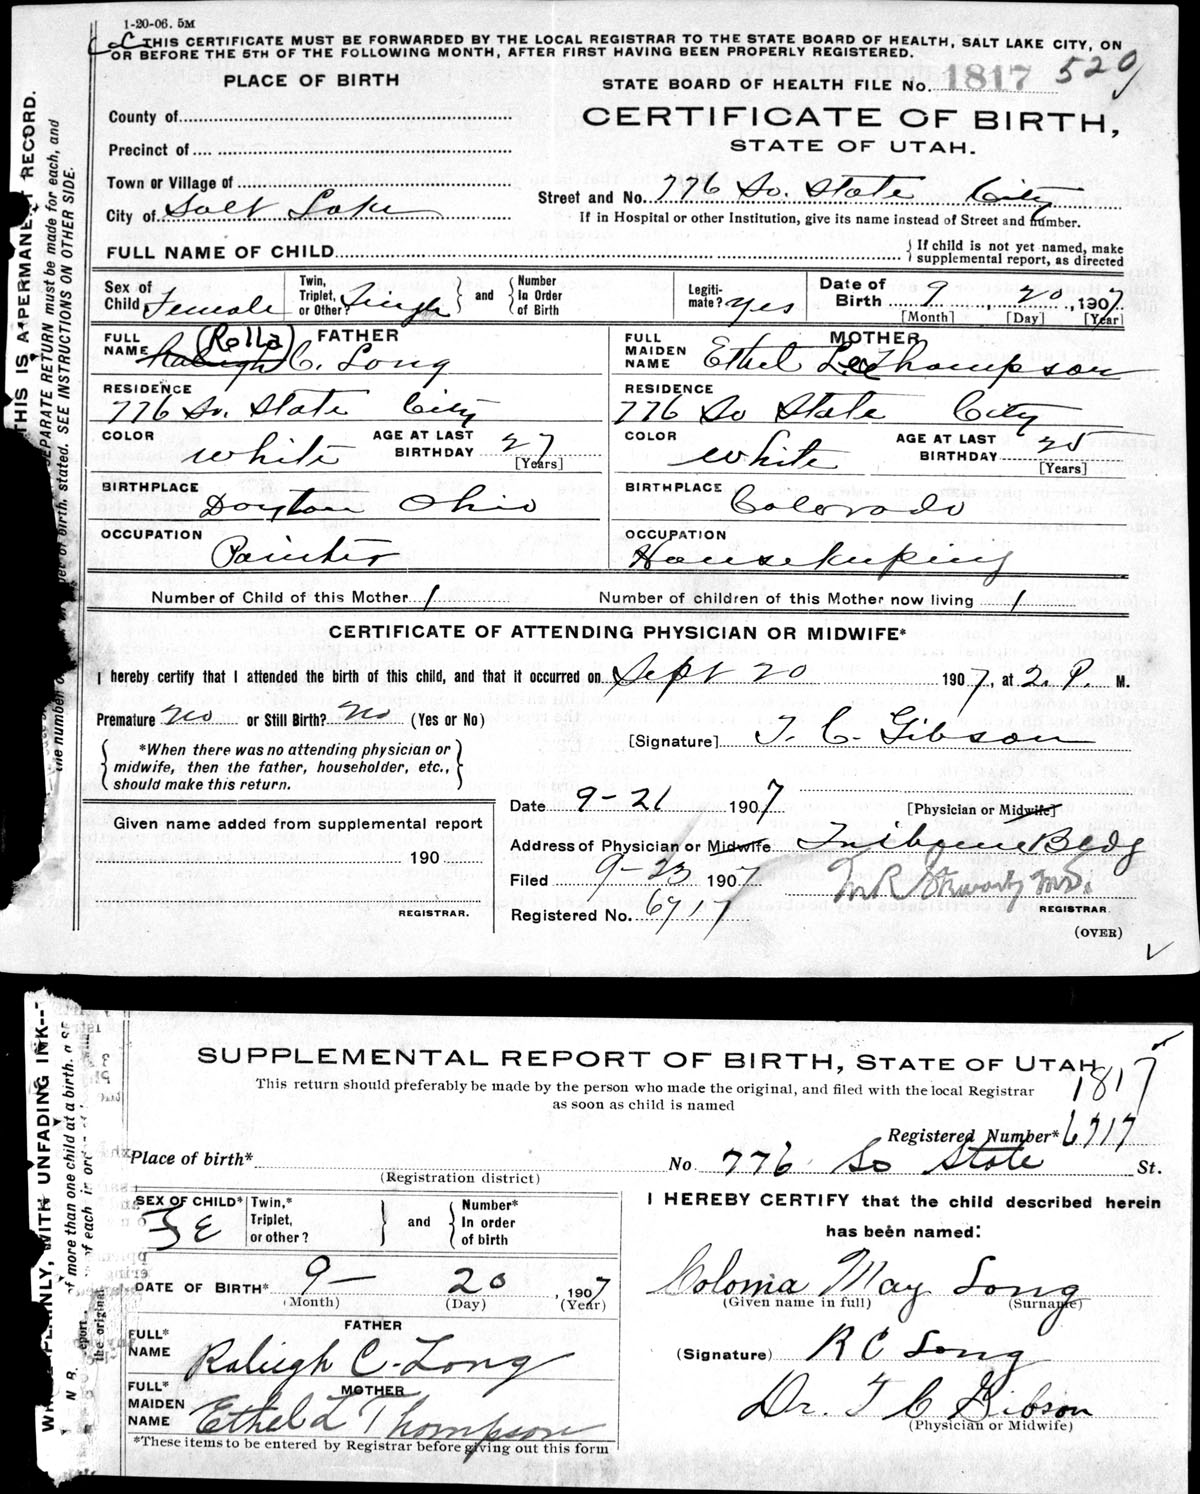 1-20-06. 5M
THIS CERTIFICATE MUST BE FORWARDED BY THE LOCAL REGISTRAR TO THE STATE BOARD OF HEALTH, SALT LAKE CITY, ON
OR BEFORE THE 5TH OF THE FOLLOWING MONTH, AFTER FIRST HAVING BEEN PROPERLY REGISTERED.
PLACE OF BIRTH
STATE BOARD OF HEALTH FILE No. 1817 520
County of
CERTIFICATE OF BIRTH,
Precinct of
STATE OF UTAH.
Town or Village of
Street and No. 776 So. State City
City of Salt Lake
If in Hospital or other Institution, give its name instead of Street and number.
FULL NAME OF CHILD
If child is not yet named, make
supplemental report, as directed
Sex of Child Female
Twin, Triplet, or Other? Single
and Number In Order of Birth
Legiti-mate? yes
Date of Birth 9, 20, 1907
[Month] [Day] [Year]
FATHER
FULL NAME Raleigh (Rolla) C. Long
MOTHER
FULL MAIDEN NAME Ethel Lee Thompson
RESIDENCE
776 So. State City
RESIDENCE
776 So State City
COLOR White
AGE AT LAST BIRTHDAY 27
[Years]
COLOR White
AGE AT LAST BIRTHDAY 25
[Years]
BIRTHPLACE
Dayton Ohio
BIRTHPLACE
Colorado
OCCUPATION
Painter
OCCUPATION
Housekeeping
Number of Child of this Mother 1
Number of children of this Mother now living 1
CERTIFICATE OF ATTENDING PHYSICIAN OR MIDWIFE*
I hereby certify that I attended the birth of this child, and that it occurred on Sept 20 1907, at 2. P. M.
Premature No or Still Birth? No (Yes or No)
[Signature] T. C. Gibson
*When there was no attending physician or
midwife, then the father, householder, etc.,
should make this return.
[Physician or Midwife]
Date 9-21 1907
Address of Physician or Midwife Tribune Bldg
Given name added from supplemental report
190
REGISTRAR.
Filed 9-23 1907
M R Stewart M.D.
REGISTRAR.
Registered No. 6717
(OVER)
THIS IS A PERMANENT RECORD.
SEPARATE RETURN must be made for each, and
of birth, stated. SEE INSTRUCTIONS ON OTHER SIDE.
SUPPLEMENTAL REPORT OF BIRTH, STATE OF UTAH
This return should preferably be made by the person who made the original, and filed with the local Registrar
as soon as child is named
1817
Registered Number* 6717
Place of birth*
(Registration district)
No 776 So State St.
SEX OF CHILD* FE
Twin,* Triplet, or other?
and Number* In order of birth
DATE OF BIRTH* 9- 20, 1907
(Month) (Day) (Year)
FATHER
FULL* NAME Raleigh C. Long
MOTHER
FULL* MAIDEN NAME Ethel L Thompson
*These items to be entered by Registrar before giving out this form
I HEREBY CERTIFY that the child described herein
has been named:
Coloma May Long
(Given name in full) (Surname)
(Signature) R C Long
Dr. T C Gibson
(Physician or Midwife)
PLAINLY, WITH UNFADING INK--
of more than one child at a birth, a SE
of each in ord
N. B.
the original